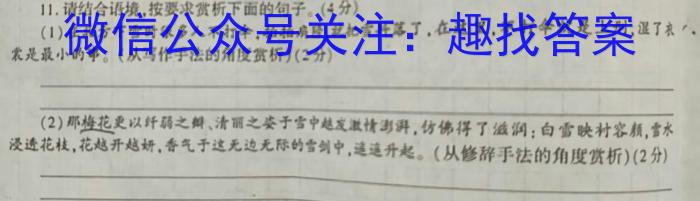 11.请结合语境,按要求赏析下面的句子。(4分)
微信公众号关注：趣找答案
(1)
落了,在
湿了衣
裳是最小的事。(从写作手法的角度赏析)(2分)
(2)那梅花更以纤弱之瓣、清丽之姿于雪中越发激情澎湃,仿佛得了滋润:白雪映衬容颜,雪水
浸透花枝,花越开越妍,香气于这无边无际的雪剑中,遥遥升起。(从修辞手法的角度赏析)(2分)